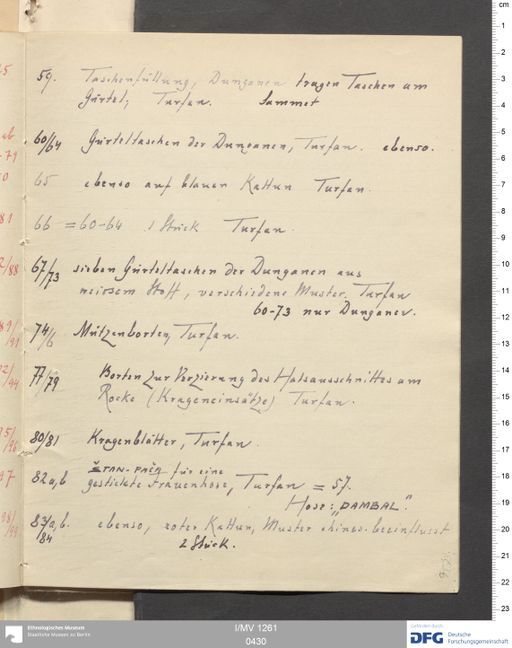 59. Taschenfüllung, Dunganen tragen Taschen am
Gürtel, Turfan. Sammet
60/64 Gürteltaschen der Dunganen, Turfan. ebenso.
65 ebenso auf blauen Kattun Turfan.
66 = 60-64 1 Stück Turfan.
67/73 sieben Gürteltaschen der Dunganen aus
weissem Stoff, verschiedene Muster. Turfan
60-73 nur Dunganen.
74/6 Mützenborten, Turfan.
77/79 Borten zur Verzierung des Halsausschnittes am
Rocke (Krageneinsätze) Turfan.
80/81 Kragenblätter, Turfan.
82 a, b für eine
gestickte Frauenhose, Turfan = 57.
Hose: "DAMBAL".
83/a, b. ebenso, roter Kattun, Muster chines. beeinflusst
84 2 Stück.
cm
1
2
3
4
5
6
7
8
9
10
11
12
13
14
15
16
17
18
19
20
21
22
23
Ethnologisches Museum
Staatliche Museen zu Berlin
I/MV 1261
0430
Gefördert durch
DFG Deutsche
Forschungsgemeinschaft